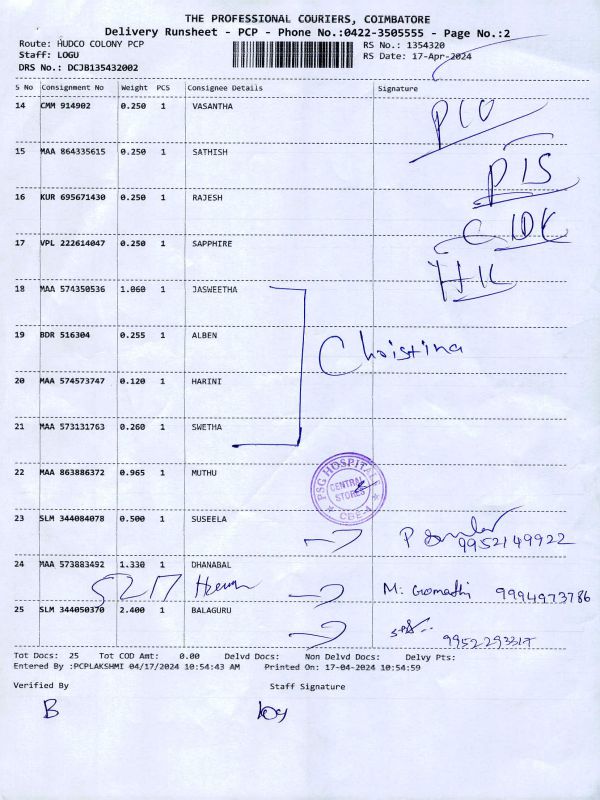 THE PROFESSIONAL COURIERS, COIMBATORE
Delivery Runsheet - PCP - Phone No.:0422-3505555 - Page No.:2
Route: HUDCO COLONY PCP RS No.: 1354320
Staff: LOGU RS Date: 17-Apr-2024
DRS No.: DCJB135432002
S No Consignment No Weight PCS Consignee Details Signature
14 CMM 914902 0.250 1 VASANTHA
15 MAA 864335615 0.250 1 SATHISH
16 KUR 695671430 0.250 1 RAJESH
17 VPL 222614047 0.250 1 SAPPHIRE
18 MAA 574350536 1.060 1 JASWEETHA
19 BDR 516304 0.255 1 ALBEN
Christina
20 MAA 574573747 0.120 1 HARINI
21 MAA 573131763 0.260 1 SWETHA
22 MAA 863886372 0.965 1 MUTHU
PSG HOSPITALS
CENTRAL STORES
CBE-4
23 SLM 344084078 0.500 1 SUSEELA
P 9952149922
24 MAA 573883492 1.330 1 DHANABAL
5217 M. Gomathi 9994973786
25 SLM 344050370 2.400 1 BALAGURU
Tot Docs: 25 Tot COD Amt: 0.00 Delvd Docs: Non Delvd Docs: Delvy Pts:
Entered By :PCPLAKSHMI 04/17/2024 10:54:43 AM Printed On: 17-04-2024 10:54:59
Verified By Staff Signature
B